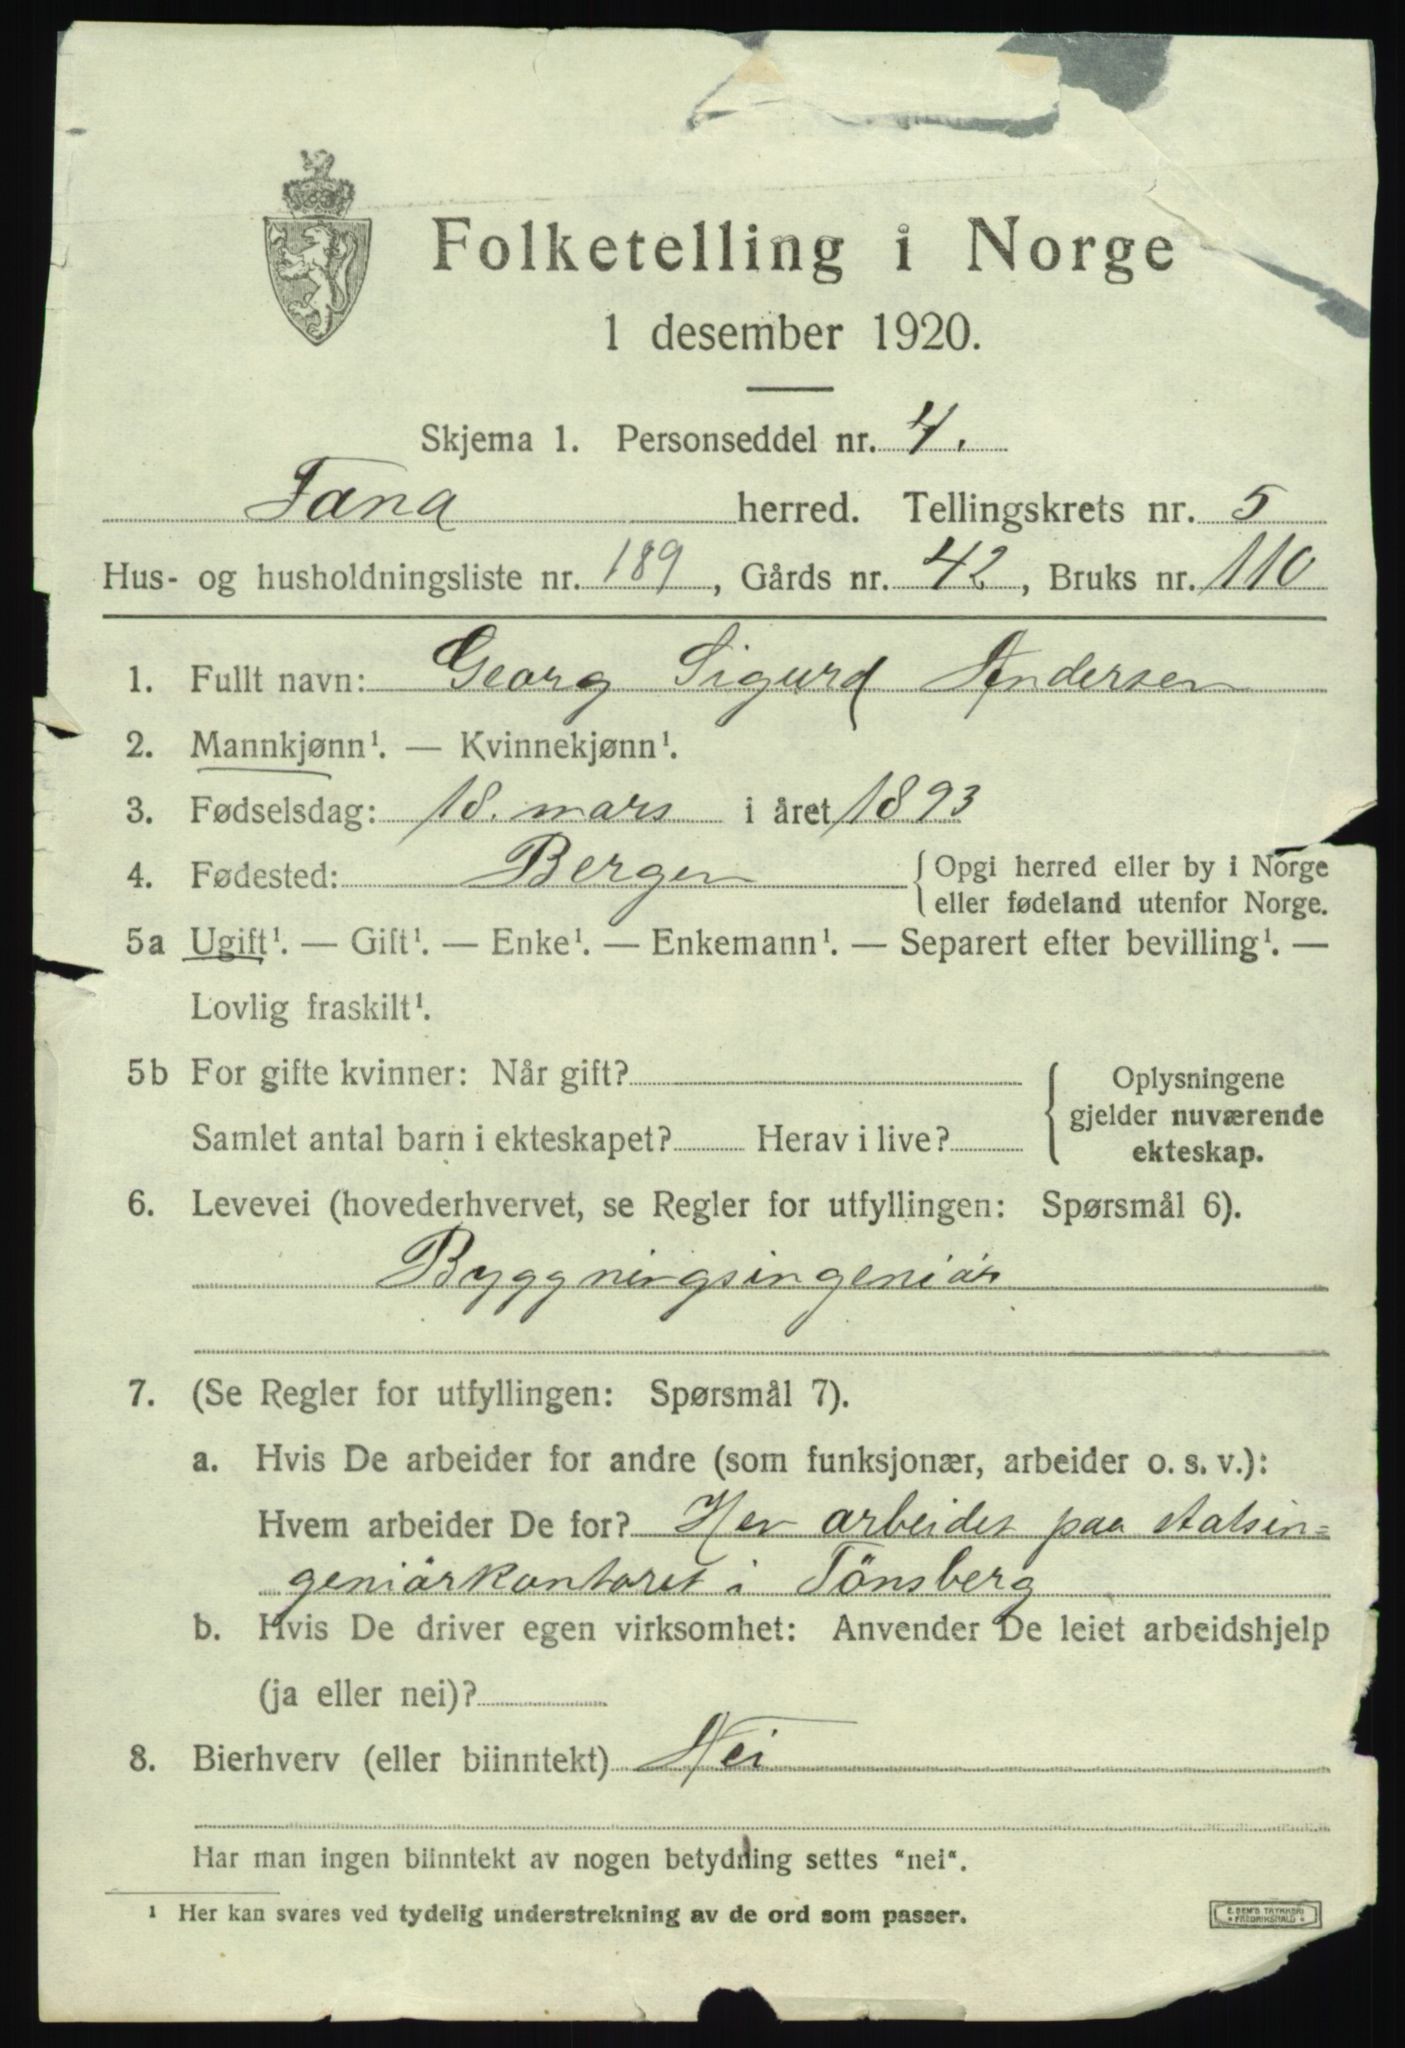 Folketelling i Norge
1 desember 1920.
Skjema 1. Personseddel nr. 4.
Fana herred. Tellingskrets nr. 5
Hus- og husholdningsliste nr. 189, Gårds nr. 42, Bruks nr. 110
1. Fullt navn: Georg Sigurd Andersen
2. Mannkjønn¹. — Kvinnekjønn¹.
3. Fødselsdag: 18. mars i året 1893
4. Fødested: Bergen { Opgi herred eller by i Norge
eller fødeland utenfor Norge.
5a Ugift¹. — Gift¹. — Enke¹. — Enkemann¹. — Separert efter bevilling¹. —
Lovlig fraskilt¹.
5b For gifte kvinner: Når gift?
Samlet antal barn i ekteskapet? Herav i live?
{ Oplysningene
gjelder nuværende
ekteskap.
6. Levevei (hovederhvervet, se Regler for utfyllingen: Spørsmål 6).
Byggningsingeniör
7. (Se Regler for utfyllingen: Spørsmål 7).
a. Hvis De arbeider for andre (som funksjonær, arbeider o. s. v.):
Hvem arbeider De for? Har arbeidet paa statsin=
geniörkontoret i Tönsberg
b. Hvis De driver egen virksomhet: Anvender De leiet arbeidshjelp
(ja eller nei)?
8. Bierhverv (eller biinntekt) Nei
Har man ingen biinntekt av nogen betydning settes "nei".
¹ Her kan svares ved tydelig understrekning av de ord som passer.
E. SEM'S TRYKKERI
FREDRIKSHALD